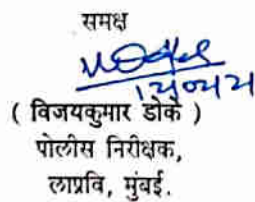 समक्ष
( विजयकुमार डोके )
पोलीस निरीक्षक,
लाप्रवि, मुंबई.